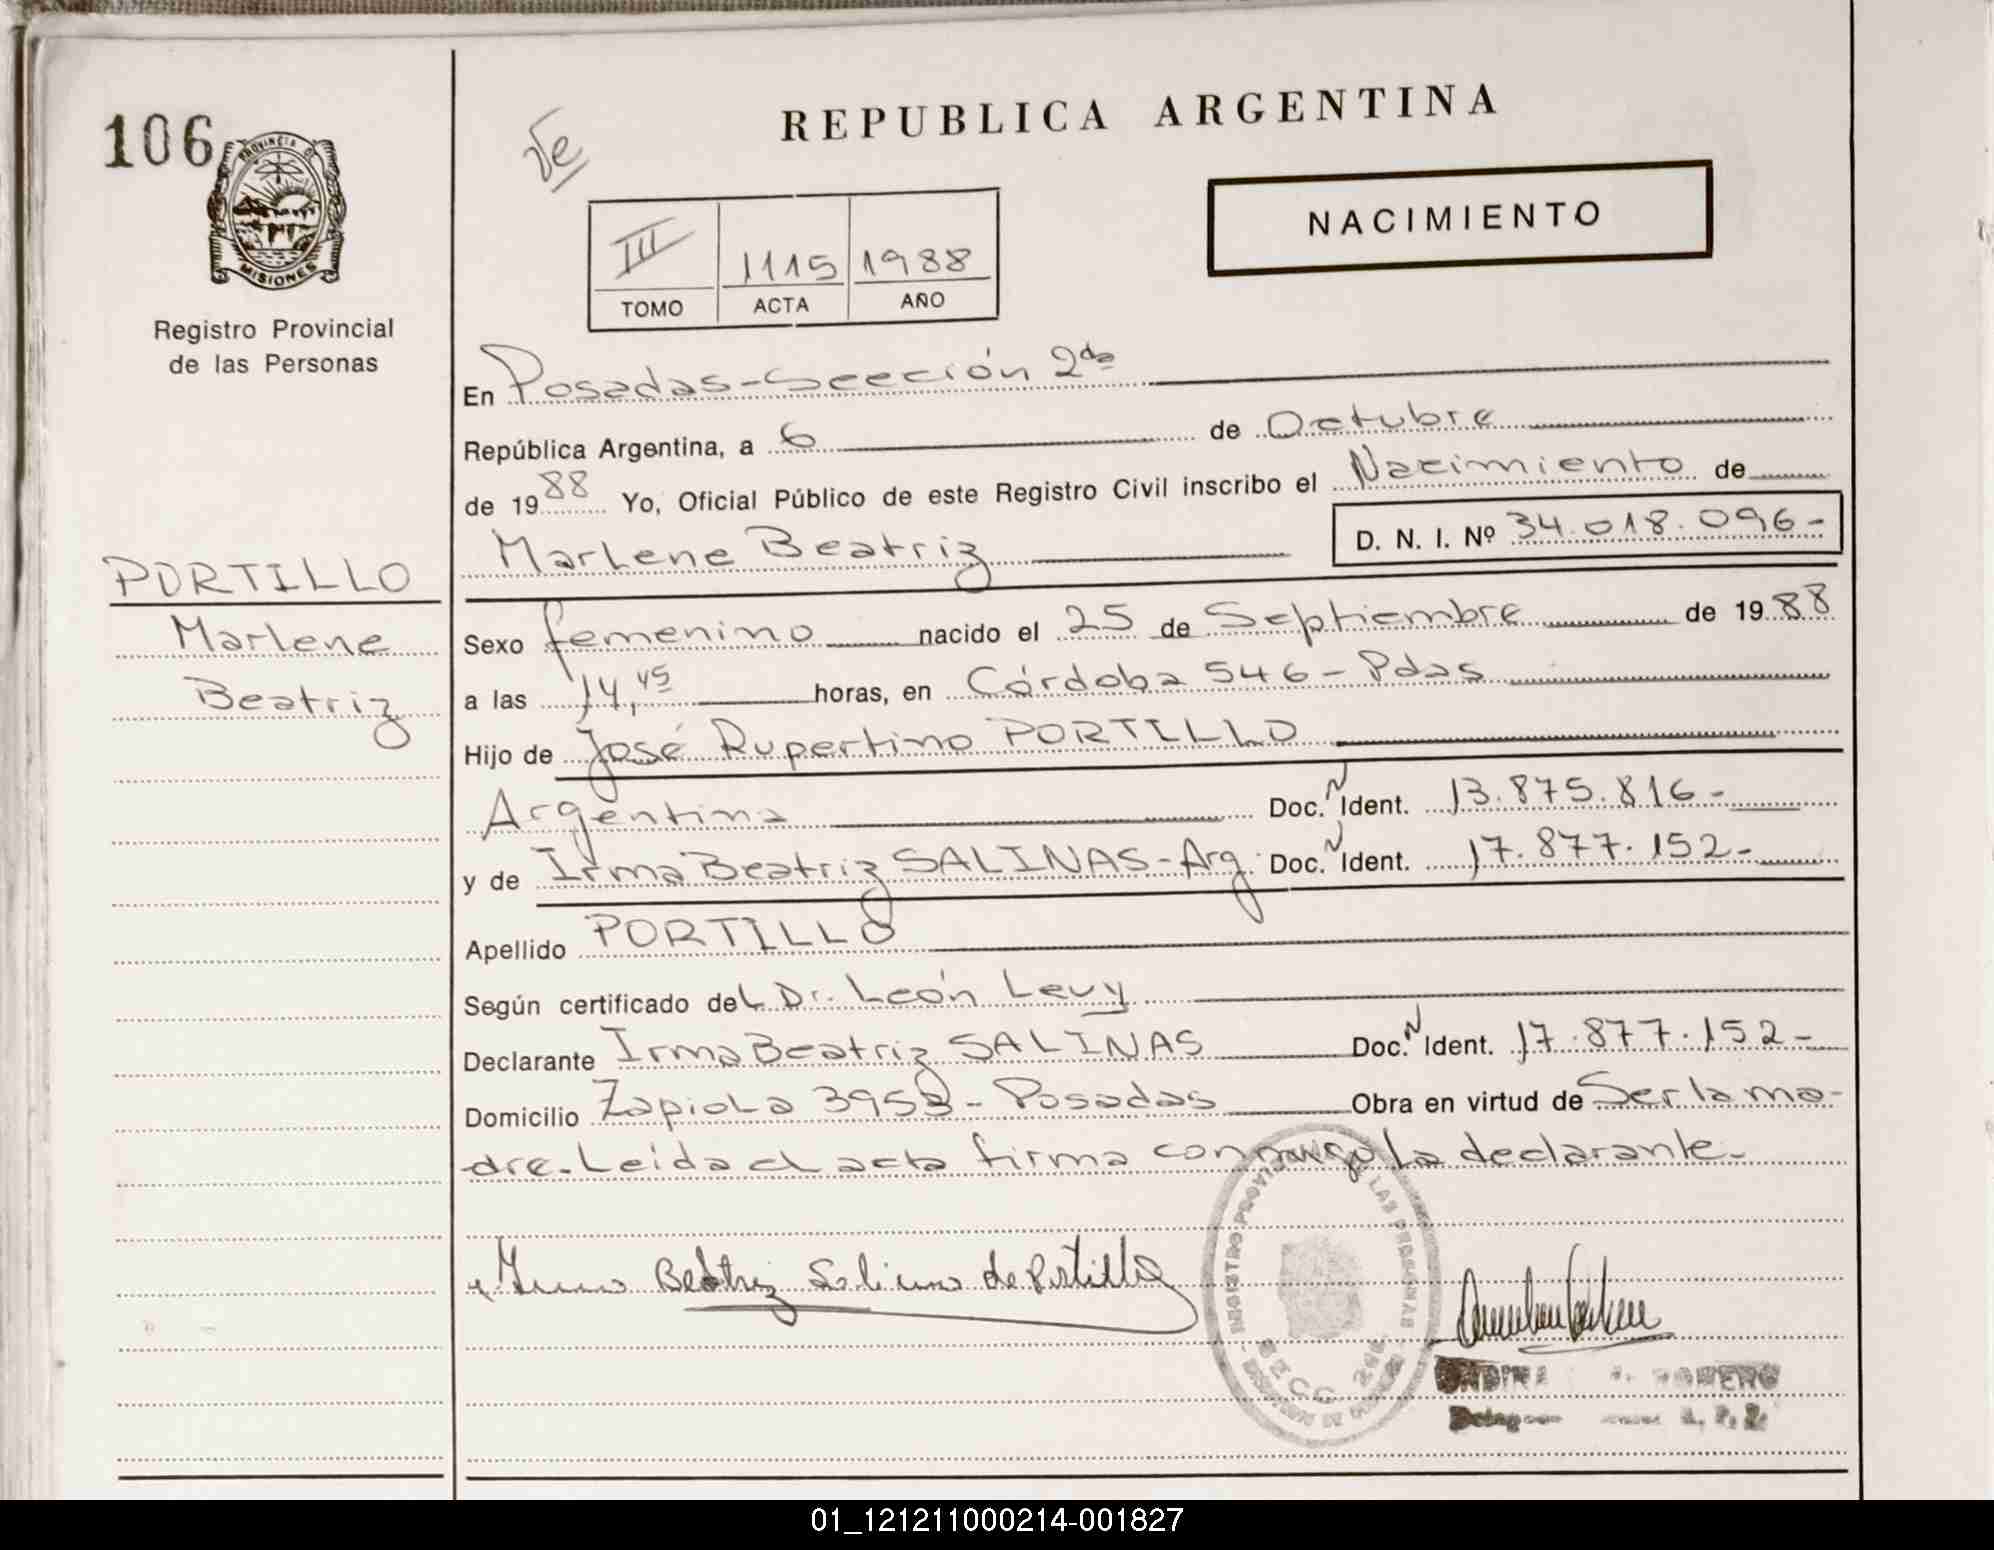 106
PROVINCIA DE
MISIONES
Registro Provincial
de las Personas
REPUBLICA ARGENTINA
NACIMIENTO
III 1115 1988
TOMO ACTA AÑO
En Posadas-Sección 2da
República Argentina, a 6 de Octubre
de 1988 Yo, Oficial Público de este Registro Civil inscribo el Nacimiento de
Marlene Beatriz D. N. I. Nº 34.018.096-
PORTILLO
Marlene
Beatriz
Sexo femenino nacido el 25 de Septiembre de 1988
a las 14,45 horas, en Córdoba 546 - Pdas
Hijo de José Rupertino PORTILLO
Argentina Doc. N Ident. 13.875.816-
y de Irma Beatriz SALINAS-Arg. Doc. N Ident. 17.877.152-
Apellido PORTILLO
Según certificado del Dr. León Levy
Declarante Irma Beatriz SALINAS Doc. N Ident. 17.877.152-
Domicilio Zapiola 3953 - Posadas Obra en virtud de Ser la ma-
dre. Leida el acta firma conmigo la declarante.
Irma Beatriz Salinas de Portillo
REGISTRO PROVINCIAL DE LAS PERSONAS
SECC. 2da.
ROMERO
01_121211000214-001827